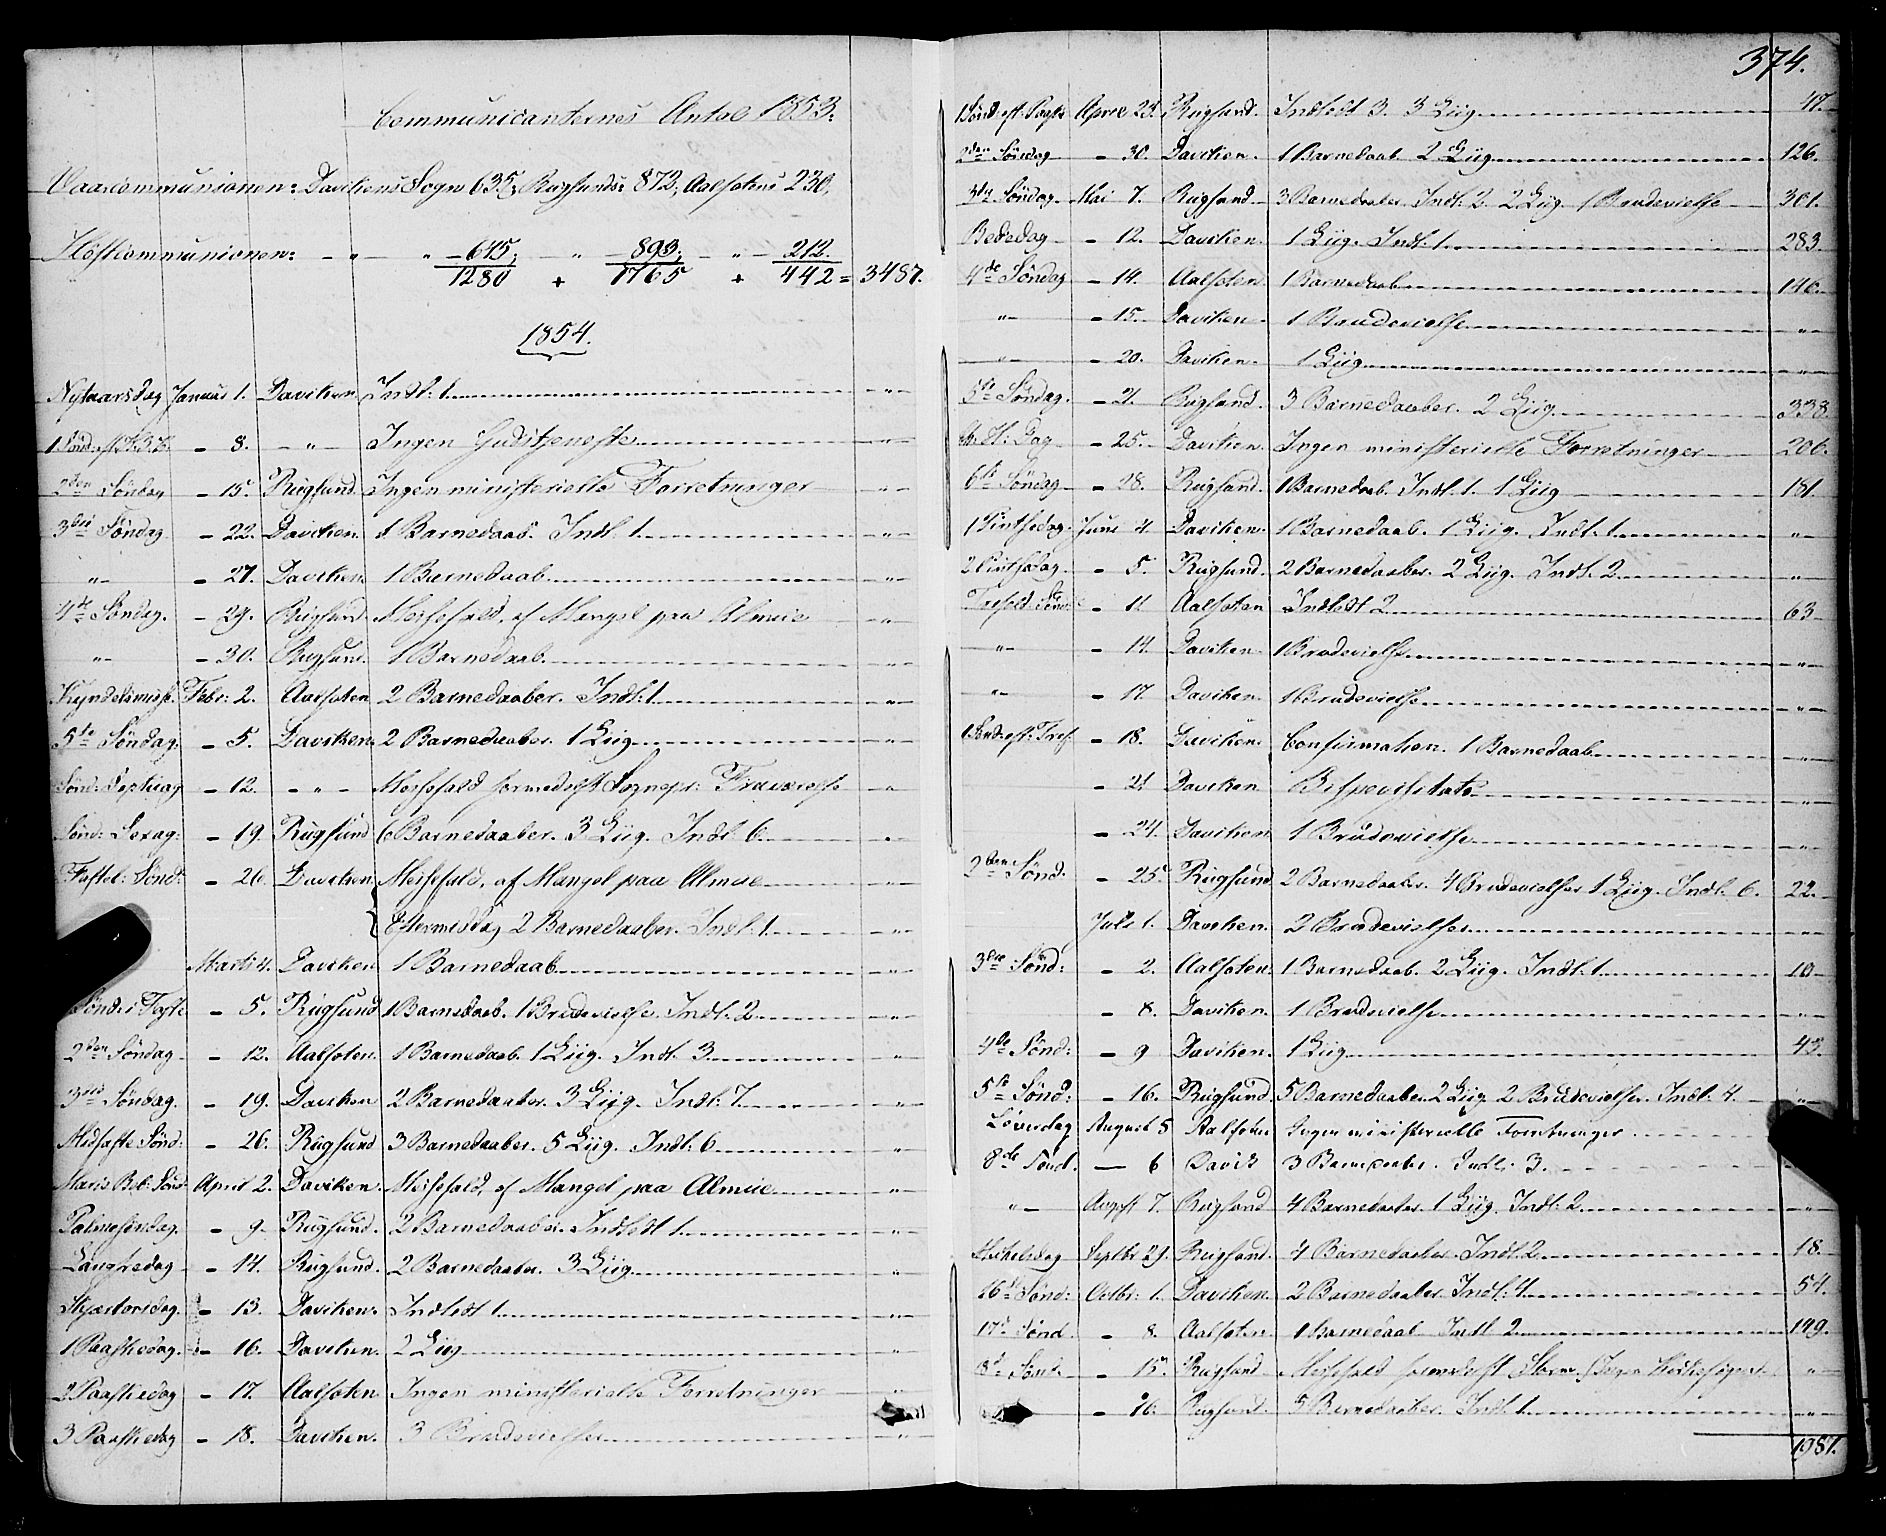 Communicanternes Antal 1853.
Vaarcommunionen: Davikens Sogn 635; Rugsunds: 872; Aalfotens 230.
Höstcommunionen: - „ - „ - 645; - „ 893; - „ - 212.
1280 + 1765 + 442 = 3487.
1854.
Nytaarsdag Januar 1. Daviken Indl: 1. „
1 Sönd. 8. „ Ingen Gudstjeneste „
2den Söndag - 15. Rugsund. Ingen ministerielle Forretninger „
3die Söndag - 22. Daviken 1 Barnedaab. Indl: 1. „
„ - 27. Daviken. 1 Barnedaab. „
4de Söndag. - 29. Rugsund. Messefald, af Mangel paa Almue „
„ - 30. Rugsund. 1 Barnedaab. „
Kyndelsmisse. Febr: 2. Aalfoten 2 Barnedaaber. Indl: 1. „
5te Söndag. - 5. Daviken. 2 Barnedaaber. 1 Liig. „
Sönd: Septuag - 12. - „ - Messefald formedelst Sognepr: Fraværelse „
Sönd: Sexag: - 19. Rugsund 6 Barnedaaber. 3 Liig. Indl: 6. „
Fastel: Sönd: - 26. Daviken Messefald, af Mangel paa Almue „
Eftermiddag 2 Barnedaaber. Indl: 1. „
Marts 4. Daviken 1 Barnedaab. „
Sönd: i Faste - 5. Rugsund 1 Barnedaab. 1 Brudevielse. Indl: 2. „
2den Söndag - 12. Aalfoten. 1 Barnedaab. 1 Liig. Indl: 3. „
3die Söndag. - 19. Daviken 2 Barnedaaber. 3 Liig. Indl: 7. „
Midfaste Sönd: - 26. Rugsund 3 Barnedaaber. 5 Liig. Indl: 6. „
Mariæ Beb: Sönd: April 2. Daviken. Messefald, af Mangel paa Almue „
Palmesöndag. - 9. Rugsund. 2 Barnedaaber. Indledt 1. „
Langfredag - 14. Rugsund. 2 Barnedaaber. 3 Liig „
Skjærtorsdag. - 13. Daviken. Indledt 1. „
1 Paaskedag. - 16. Daviken. 2 Liig „
2 Paaskedag - 17. Aalfoten Ingen ministerielle Forretninger „
3 Paaskedag - 18. Daviken. 3 Brudevielser „
374.
1 Sönd: eft: Paaske April 23. Rugsund. Indledt 3. 3 Liig. 47.
2den Söndag - 30. Daviken. 1 Barnedaab 2 Liig 126.
3die Söndag. Mai 7. Rugsund 3 Barnedaaber. Indl: 2. 2 Liig. 1 Brudevielse 301.
Bededag - 12. Daviken. 1 Liig. Indl: 1. 283.
4de Söndag - 14. Aalfoten. 1 Barnedaab 140.
„ - 15. Daviken 1 Brudevielse „
„ - 20. Daviken. 1 Liig „
5te Söndag. - 21. Rugsund. 3 Barnedaaber. 2 Liig 338.
Chr. H: Dag - 25. Daviken. Ingen ministerielle Forretninger 206.
6te Söndag - 28. Rugsund. 1 Barnedaab. Indl: 1. 1 Liig 181.
1 Pintsedag. Juni 4. Daviken. 1 Barnedaab. 1 Liig. Indl: 1. „
2 Pintsedag. - 5. Rugsund. 2 Barnedaaber. 2 Liig. Indl: 2. „
Trefold: Sönd: - 11. Aalfoten Indledt 2. 63
„ - 14. Daviken 1 Brudevielse „
„ - 17. Daviken. 1 Brudevielse „
1 Sönd: eft: Tref: - 18. Daviken. Confirmation. 1 Barnedaab „
- 21 Daviken Bispevisitats „
- 24. Daviken 1 Brudevielse „
2den Sönd. - 25. Rugsund 2 Barnedaaber. 4 Brudevielser 1 Liig. Indl: 6. 22.
Juli 1. Daviken. 2 Brudevielser „
3die Sönd: - 2. Aalfoten. 1 Barnedaab. 2 Liig. Indl: 1. 10
- 8. Daviken 1 Brudevielse „
4de Sönd: - 9 Daviken. 1 Liig 43.
5te Sönd: - 16. Rugsund. 5 Barnedaaber. 2 Liig 2 Brudevielser. Indl: 4. „
Löverdag August 5 Aalfoten Ingen ministerielle Forretninger
8de Sönd. — 6 Davik 3 Barnedaaber. Indl: 3.
„ August 7. Rugsund 4 Barnedaaber. 1 Liig. Indl: 2. „
Mikelsdag Septbr 29. Rugsund. 4 Barnedaaber. Indl: 2. 18.
16de Sönd: Octbr: 1. Daviken. 2 Barnedaaber. Indl: 1. 54.
17de Sönd. - 8. Aalfoten 1 Barnedaab Indl 2. 149.
18de Sönd. - 15. Rugsund Messefald formedelst Storm. (Ingen Kirkesøgende „
- 16. Rugsund. 5 Barnedaaber. Indl: 1. „
1987.